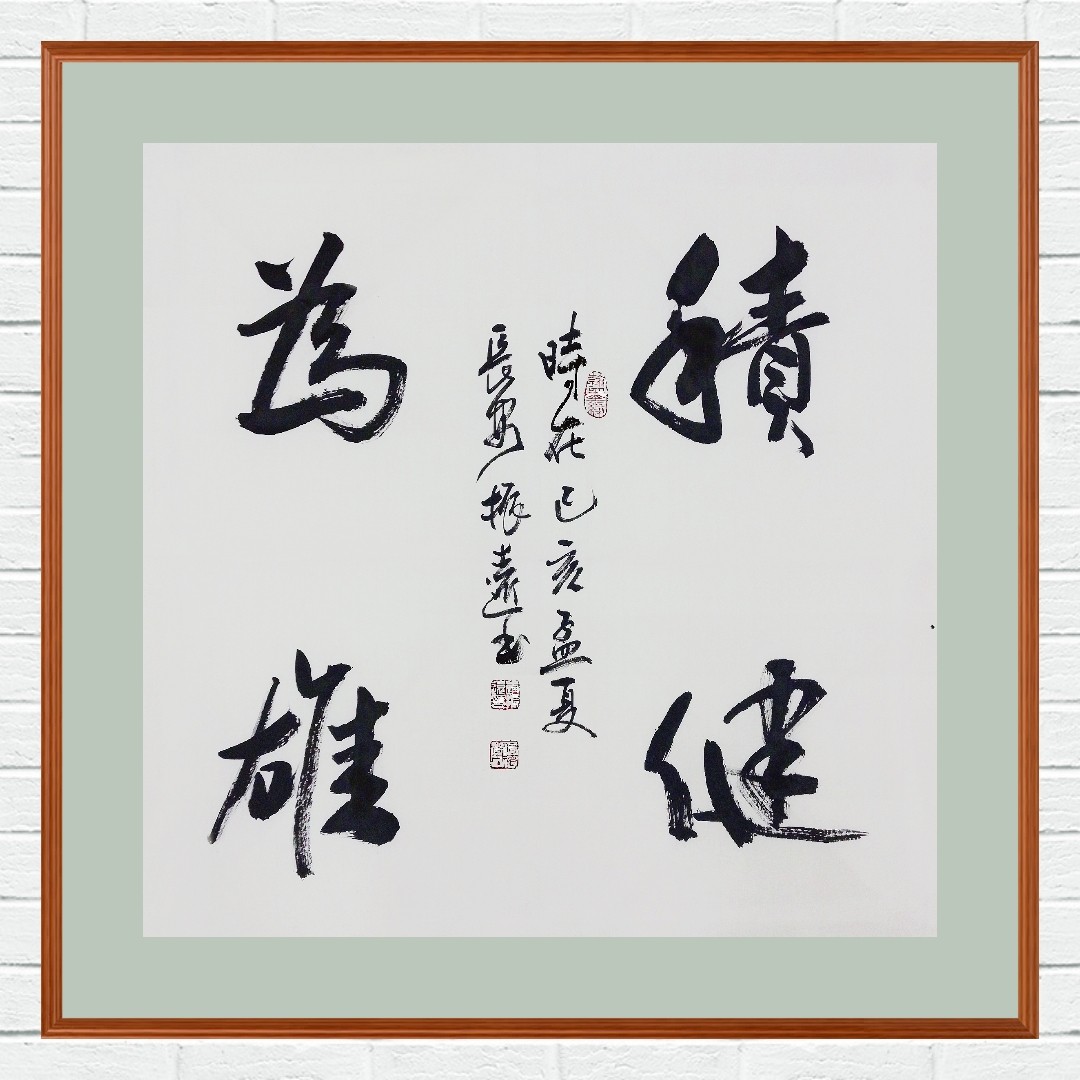 積健
為雄
時在己亥孟夏
長安振遠書